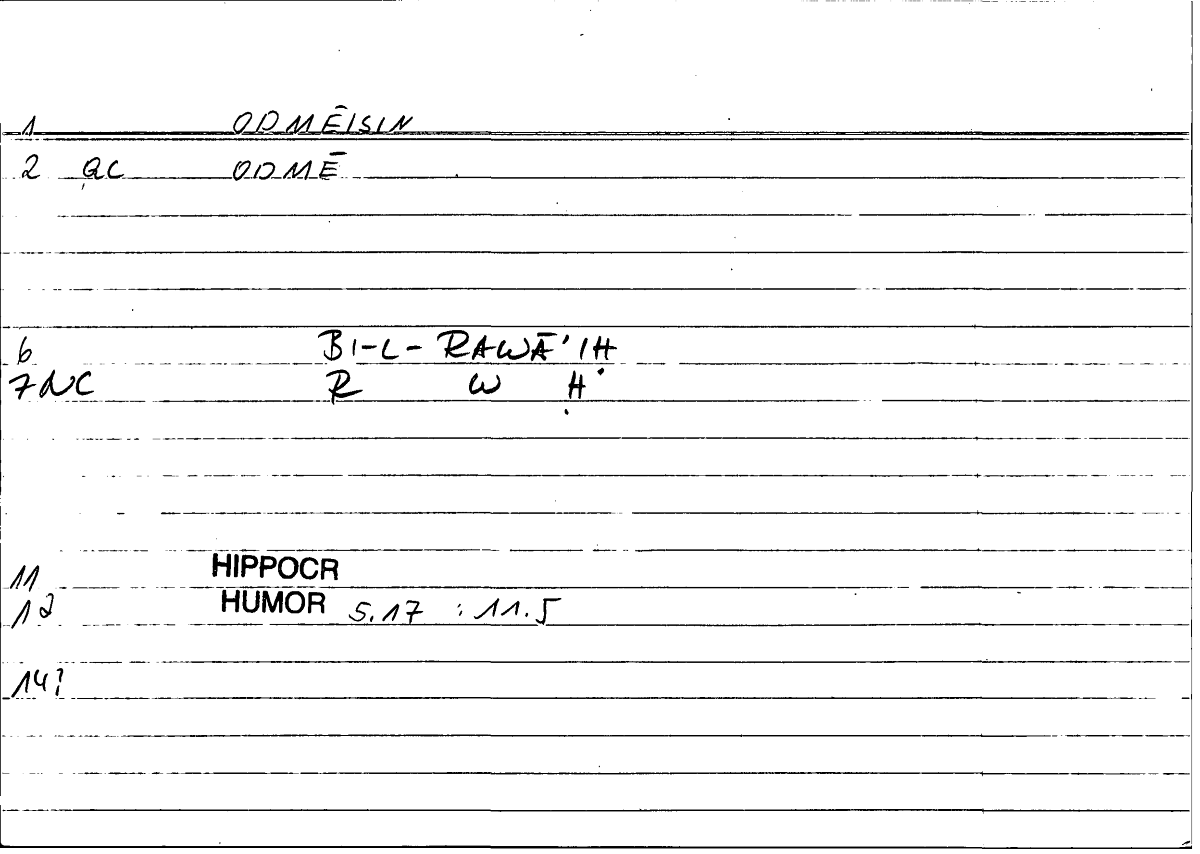 1 ODMĒISIN
2 QC ODMĒ
6 BI-L-RAWĀ'IḤ
7 NC R W Ḥ
11 HIPPOCR
12 HUMOR 5.17 : 11.5
14?